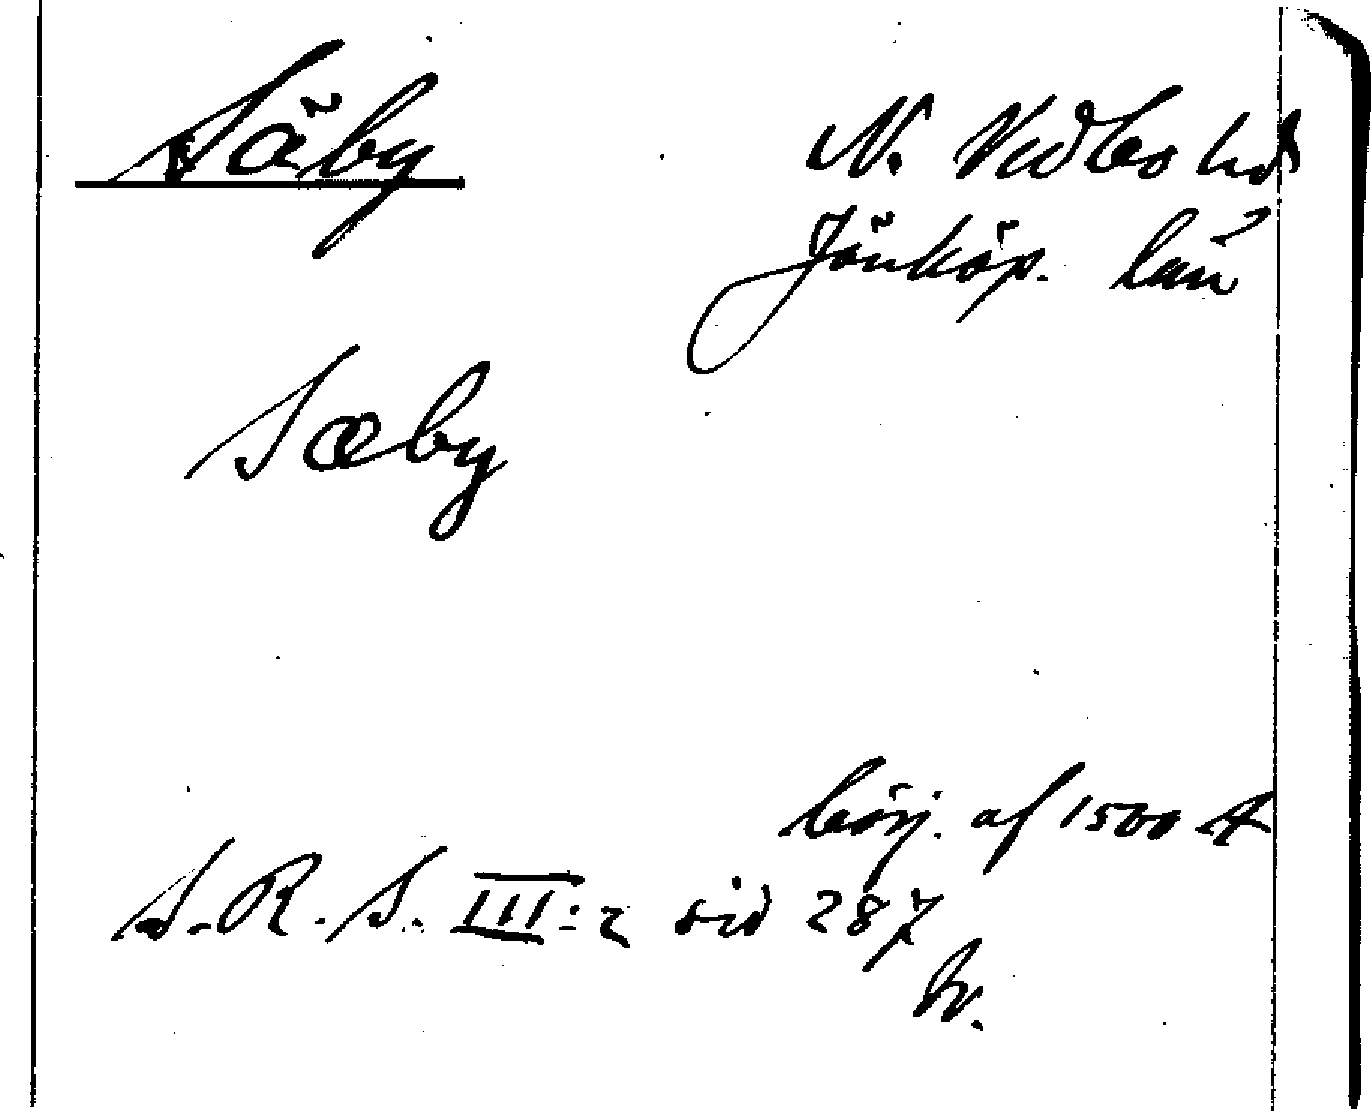 Säby
N. Vedbo hd
Jönköp. län
Sæby
börj. af 1500 t
S. R. S. III:2 sid 287